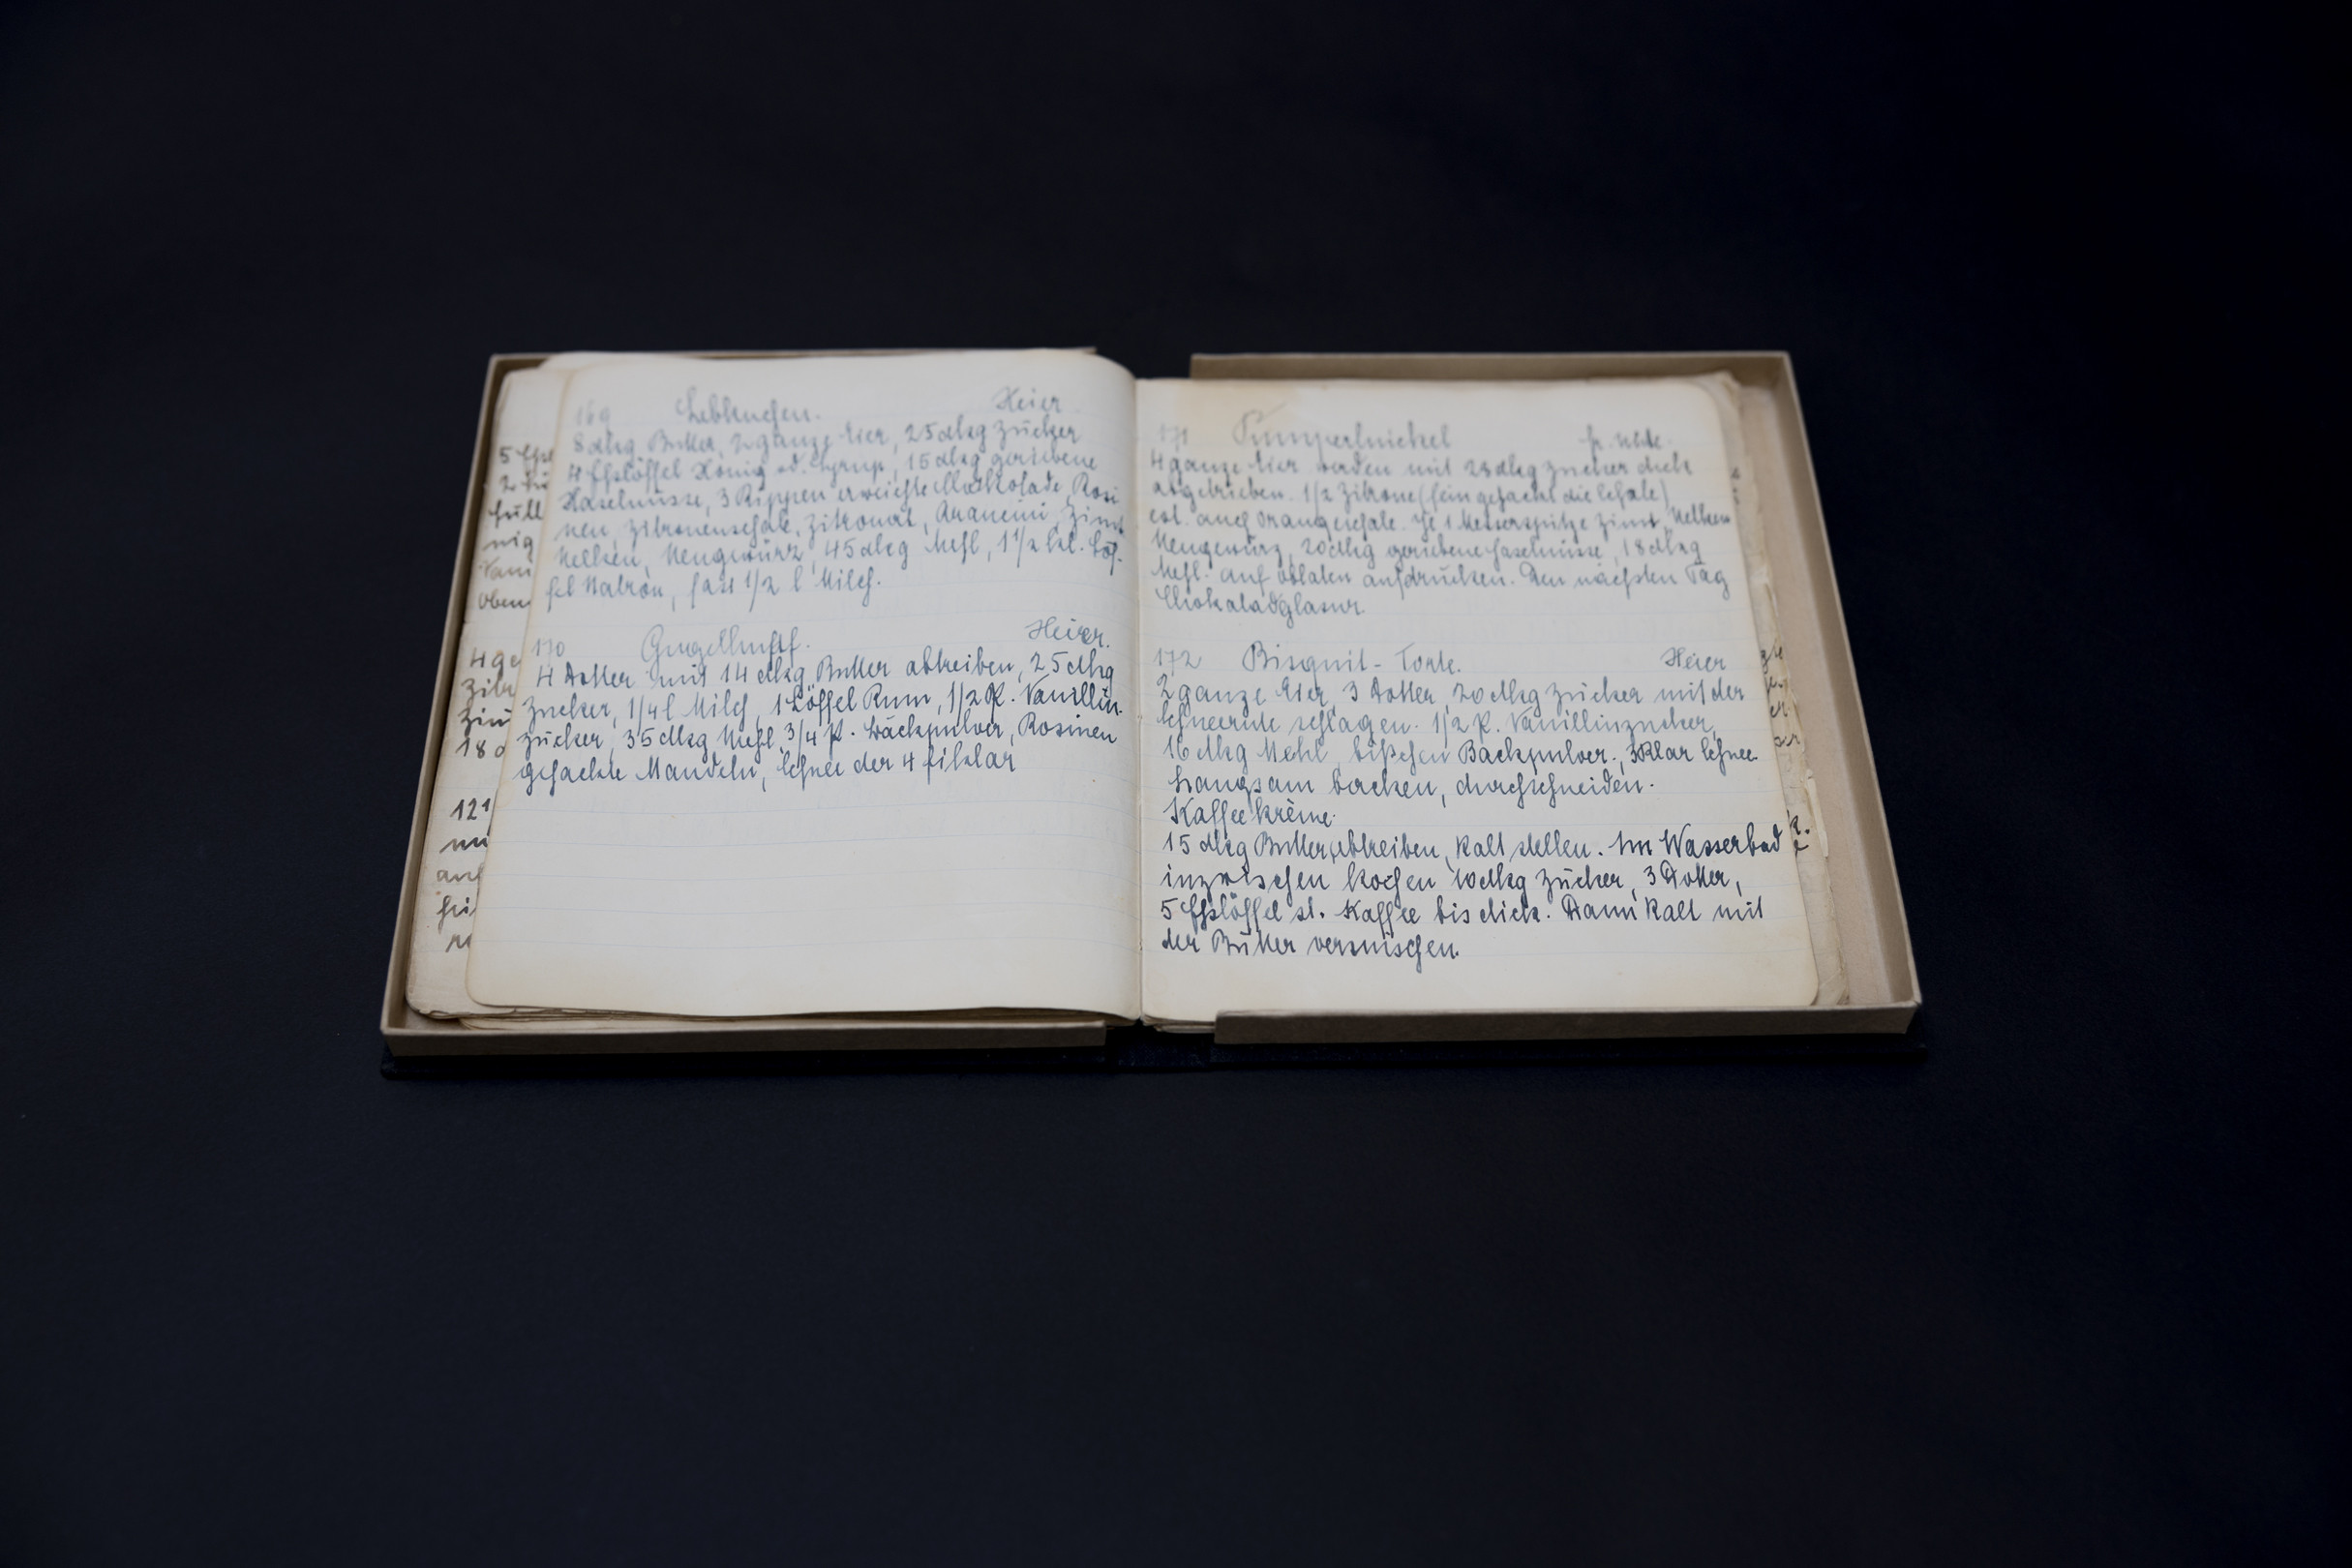 169 Lebkuchen. Heier
8 dkg Butter, 2 ganze Eier, 25 dkg Zucker
4 Esslöffel Honig od. Syrup, 15 dkg geriebene
Haselnüsse, 3 Rippen erweichte Schokolade, Rosi
nen, Zitronenschale, Zitronat, Arancini, Zimt
Nelken, Neugewürz, 45 dkg Mehl, 1 1/2 Löf-
fel Natron, fast 1/2 l Milch.
170 Gugelhupf. Heier.
4 Dotter mit 14 dkg Butter abtreiben, 25 dkg
Zucker, 1/4 l Milch, 1 Löffel Rum, 1/2 P. Vanillin-
zucker, 35 dkg Mehl, 3/4 P. Backpulver, Rosinen
gehackte Mandeln, Schnee der 4 Eiklar
171 Pumpernickel
4 ganze Eier werden mit 28 dkg Zucker dick
abgetrieben. 1/2 Zitrone (fein gehackt die Schale)
evt. auch Orangeschale. Je 1 Messerspitze Zimt, Nelken
Neugewürz, 20 dkg geriebene Haselnüsse, 18 dkg
Mehl. auf Oblaten aufdrücken. Den nächsten Tag
Schokoladglasur.
172 Bisquit-Torte. Heier
2 ganze Eier, 3 Dotter, 20 dkg Zucker mit der
Schneerute schlagen. 1/2 P. Vanillinzucker,
16 dkg Mehl, bißchen Backpulver., 3 Klar Schnee.
Langsam backen, durchschneiden.
Kaffeekrème.
15 dkg Butter abtreiben, kalt stellen. Im Wasserbad
inzwischen kochen 10 dkg Zucker, 3 Dotter,
5 Esslöffel st. Kaffee bis dick. Dann kalt mit
der Butter vermischen.